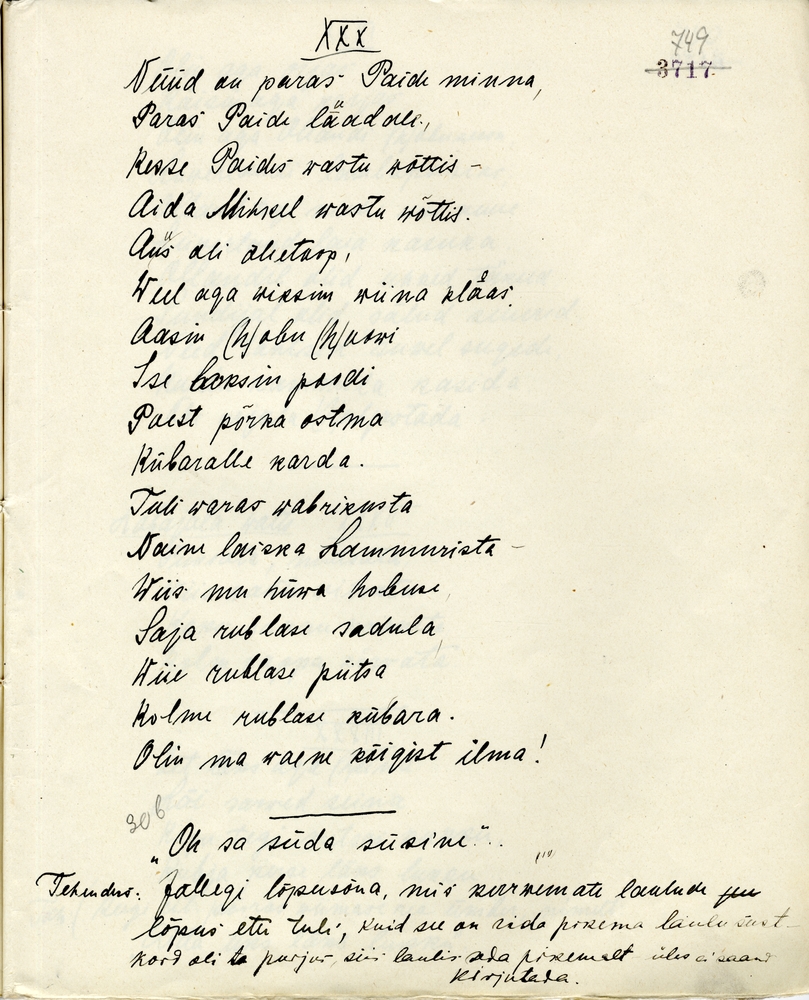 XXX
749
3717
Nüüd on paras Paide minna,
Paras Paide läädale,
Kesse Paides wastu wõttis –
Aida Mihkel wastu wõttis.
Aus oli õlletoop,
Weel aga wiksim wiina klääs.
Aasin (h)obu (h)oowi
Ise laksin poodi
Poest põrka ostma
Kübaralle karda.
Tuli waras wabrikusta
Naine laiska Lammurista –
Wiis mu hüwa hobuse,
Saja rublase sadula,
Wiie rublase piitsa
Kolme rublase kübara.
Olin ma waene kõigist ilma!
306
„Oh sa süda süsine"..
Tähendus: Jällegi lõpusõna, mis kurwemate laulude
lõpus ette tuli, kuid see on rida pikema laulu seest –
kord oli ta purjus, siis laulis seda pikemalt üles ei saand
kirjutada.